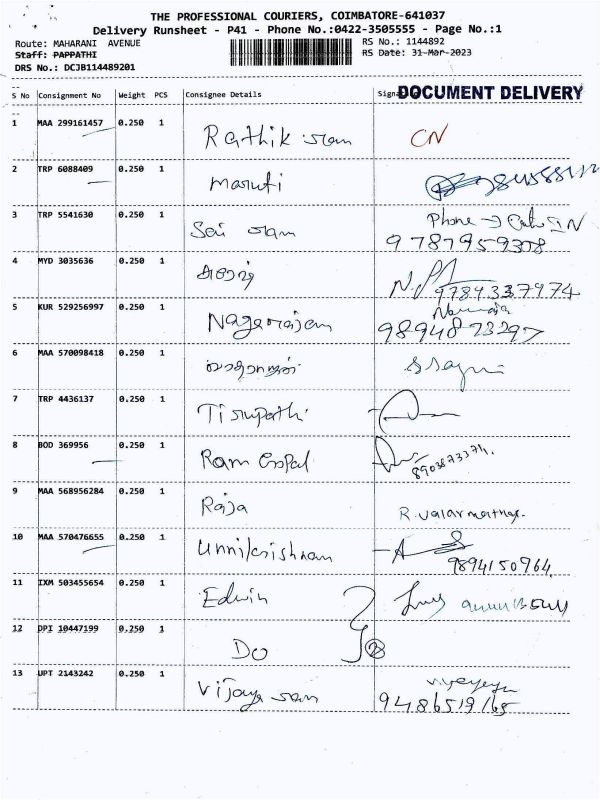 THE PROFESSIONAL COURIERS, COIMBATORE-641037
Delivery Runsheet - P41 - Phone No.:0422-3505555 - Page No.:1
Route: MAHARANI AVENUE RS No.: 1144892
Staff: PAPPATHI RS Date: 31-Mar-2023
DRS No.: DCJB114489201
S No Consignment No Weight PCS Consignee Details DOCUMENT DELIVERY
1 MAA 299161457 0.250 1 Rathik ram CN
2 TRP 6088409 0.250 1 maruti
3 TRP 5541630 0.250 1 Sai ram Phone → IN
9787959308
4 MYD 3035636 0.250 1 N. 9789337974
5 KUR 529256997 0.250 1 Nagarajan
9894873297
6 MAA 570098418 0.250 1
7 TRP 4436137 0.250 1 Tirupathi
8 BOD 369956 0.250 1 Ram Gopal
9 MAA 568956284 0.250 1 Raja R. Valarmathy.
10 MAA 570476655 0.250 1 Unnikrishnan
9894150964
11 IXM 503455654 0.250 1 Edwin
12 DPI 10447199 0.250 1 Do 2
13 UPT 2143242 0.250 1 Vijaya ram
9486519165